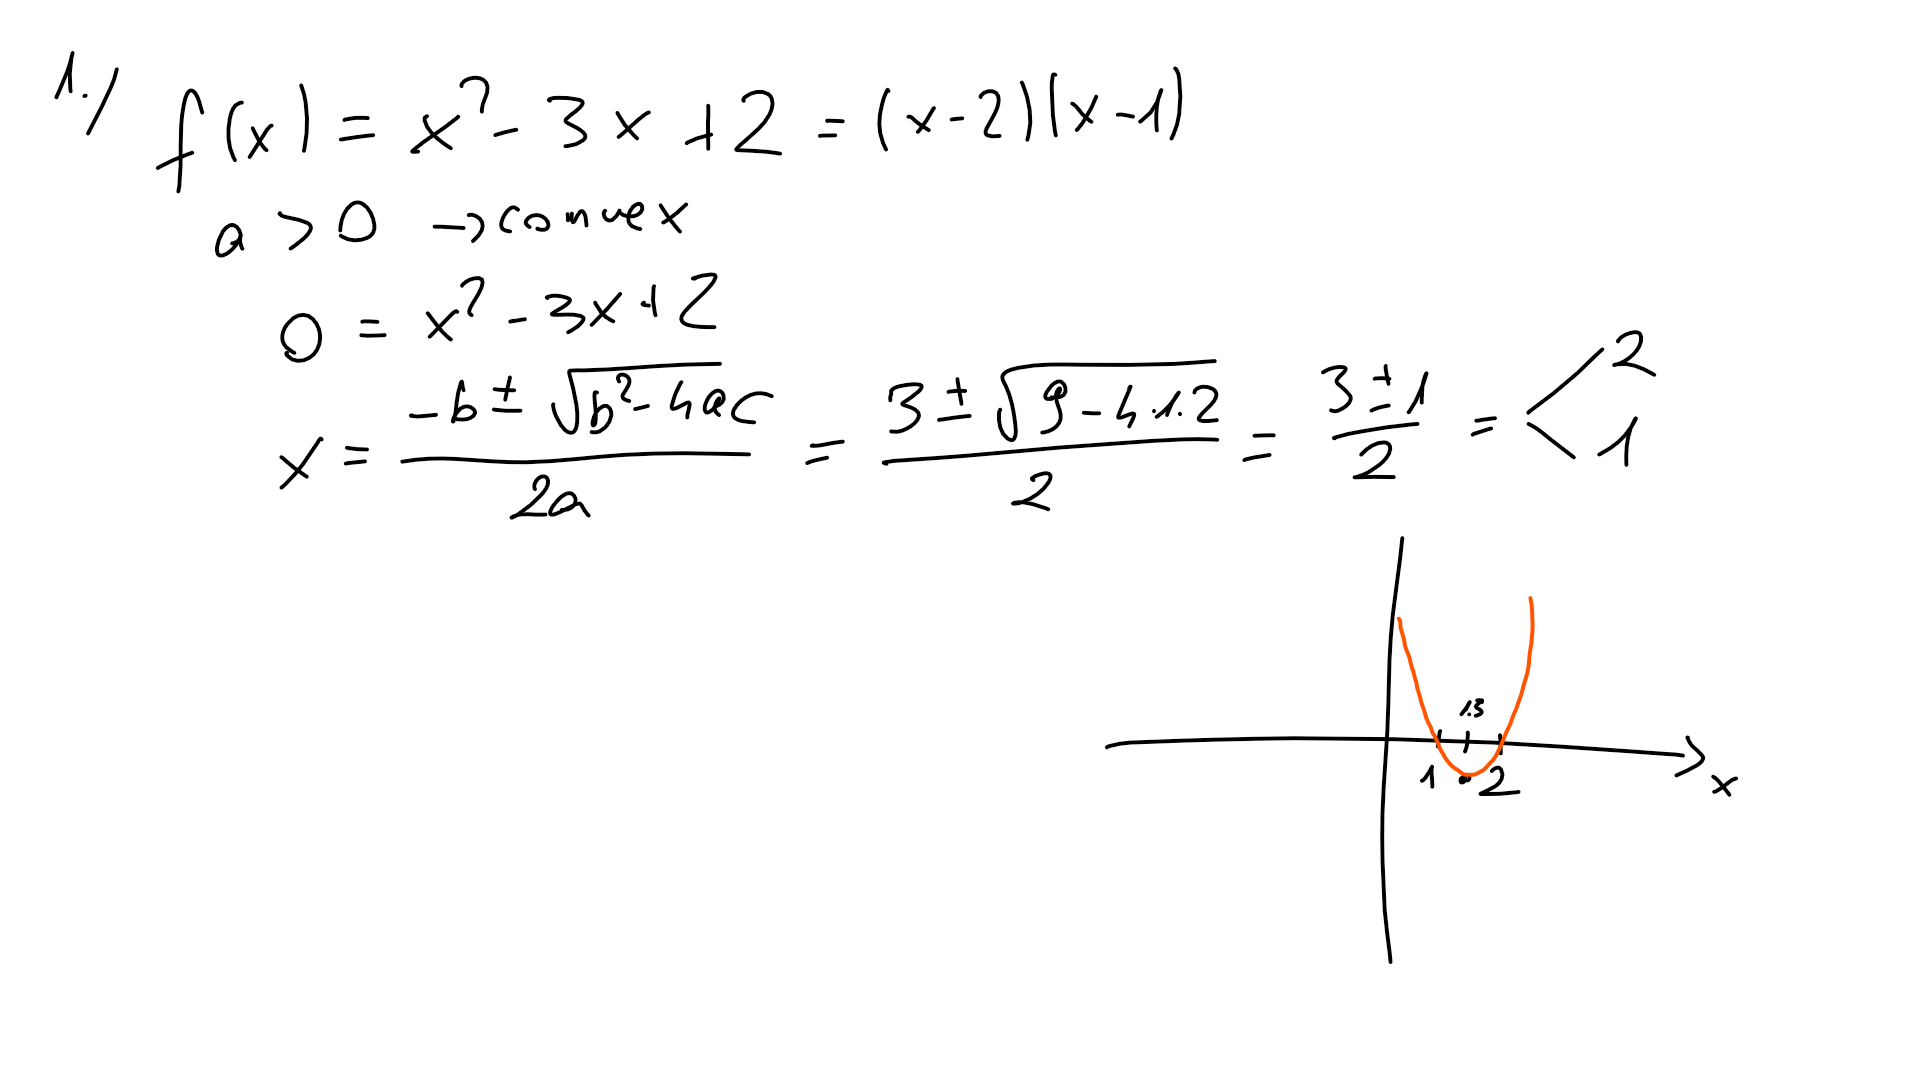 1.)
f(x) = x² - 3x + 2 = (x-2)(x-1)
a > 0 → convex
0 = x² - 3x + 2
x = (-b ± √(b² - 4ac)) / 2a = (3 ± √(9 - 4·1·2)) / 2 = (3 ± 1) / 2 = < 2 1
1 2
x